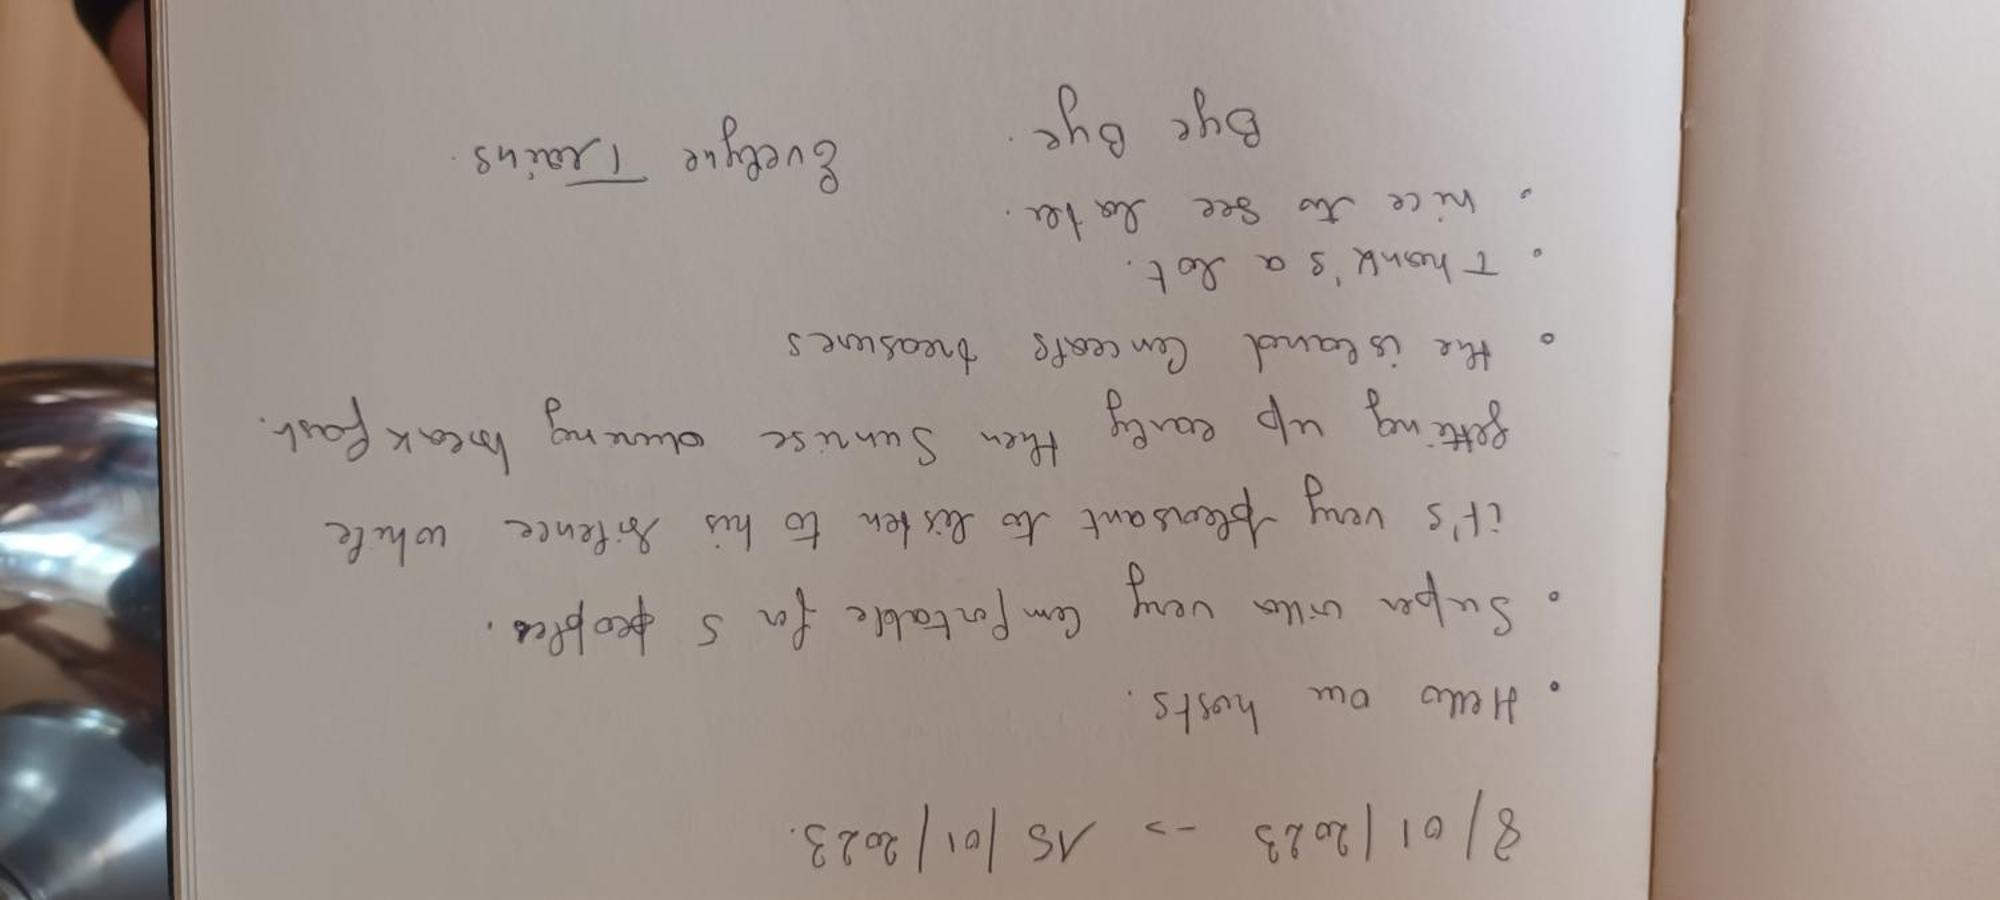 8/01/2023 -> 15/01/2023.
• Hello our hosts.
• Super villa very Comfortable for 5 peoples.
it's very pleasant to listen to his silence while
getting up early then Sunrise during breakfast.
• the island Conceals treasures
• Thank's a lot.
• nice to see later.
Bye Bye.
Evelyne